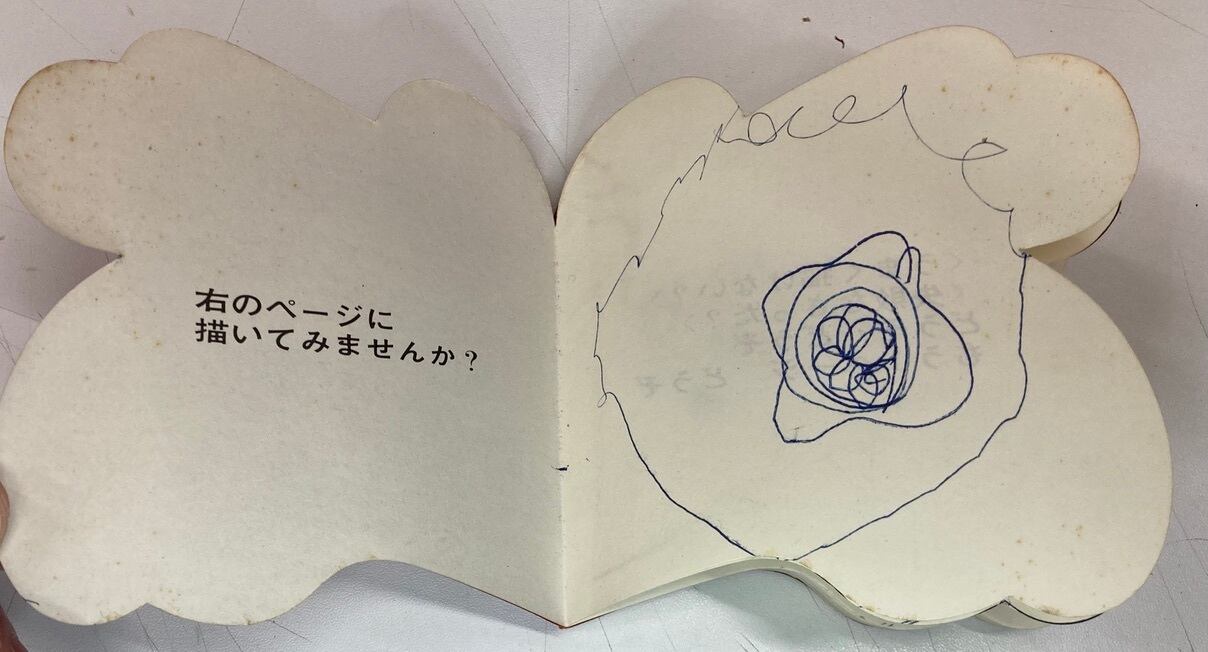 右のページに
描いてみませんか?